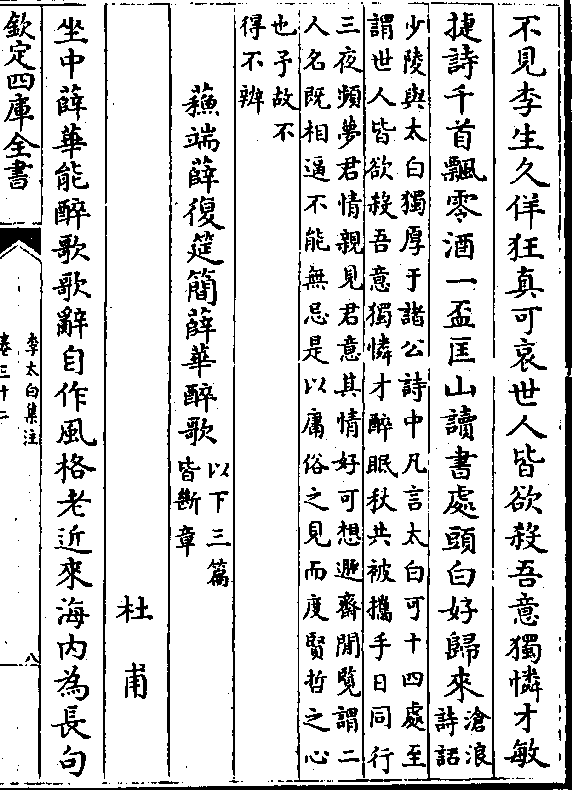 不見李生久佯狂真可哀世人皆欲殺吾意獨憐才敏
捷詩千首飄零酒一盃匡山讀書處頭白好歸來
滄浪
詩話
少陵與太白獨厚于諸公詩中凡言太白可十四處至
謂世人皆欲殺吾意獨憐才醉眠秋共被攜手日同行
三夜頻夢君情親見君意其情好可想遯齋閒覽謂二
人名既相逼不能無忌是以庸俗之見而度賢哲之心
也予故不
得不辨
蘓端薛復筵簡薛華醉歌
以下三篇
皆斷章
杜甫
坐中薛華能醉歌歌辭自作風格老近來海内為長句
欽定四庫全書
李太白集注
卷三十二
八